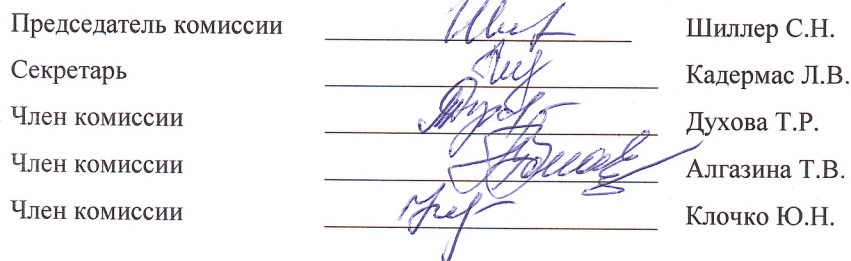 Председатель комиссии Шиллер С.Н.
Секретарь Кадермас Л.В.
Член комиссии Духова Т.Р.
Член комиссии Алгазина Т.В.
Член комиссии Клочко Ю.Н.